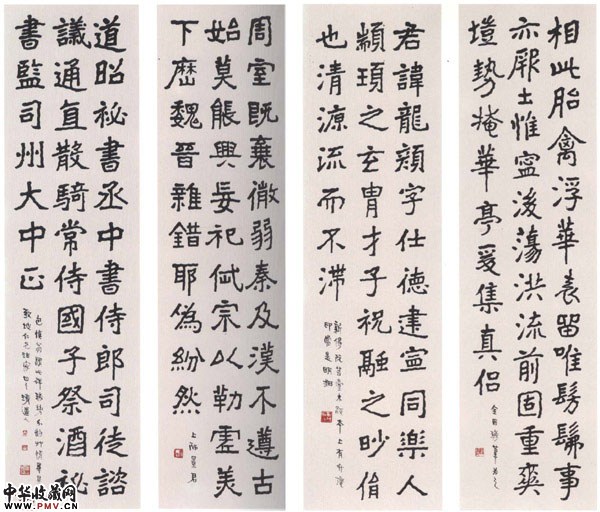 相此胎禽浮華表留唯髣髴事
亦厎土惟寧後蕩洪流前固重爽
塏勢掩華亭爰集真侶
君諱龍顏字仕德建寧同樂人
顓頊之玄冑才子祝融之眇胤
也清源流而不滯
周室既衰微弱秦及漢不遵古
始莫能興妄祀弒宗以勒虛美
下歷魏晉雜錯耶偽紛然
道昭祕書丞中書侍郎司徒諮
議通直散騎常侍國子祭酒祕
書監司州大中正
中华收藏网
www.PMV.CN